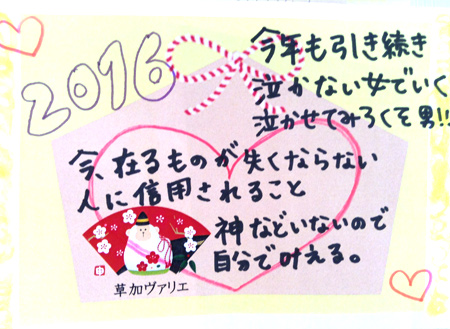 2016
今年も引き続き
泣かない女でいく
泣かせてみろくそ男!!
今、在るものが失くならない
人に信用されること
神などいないので
自分で叶える。
草加ヴァリエ